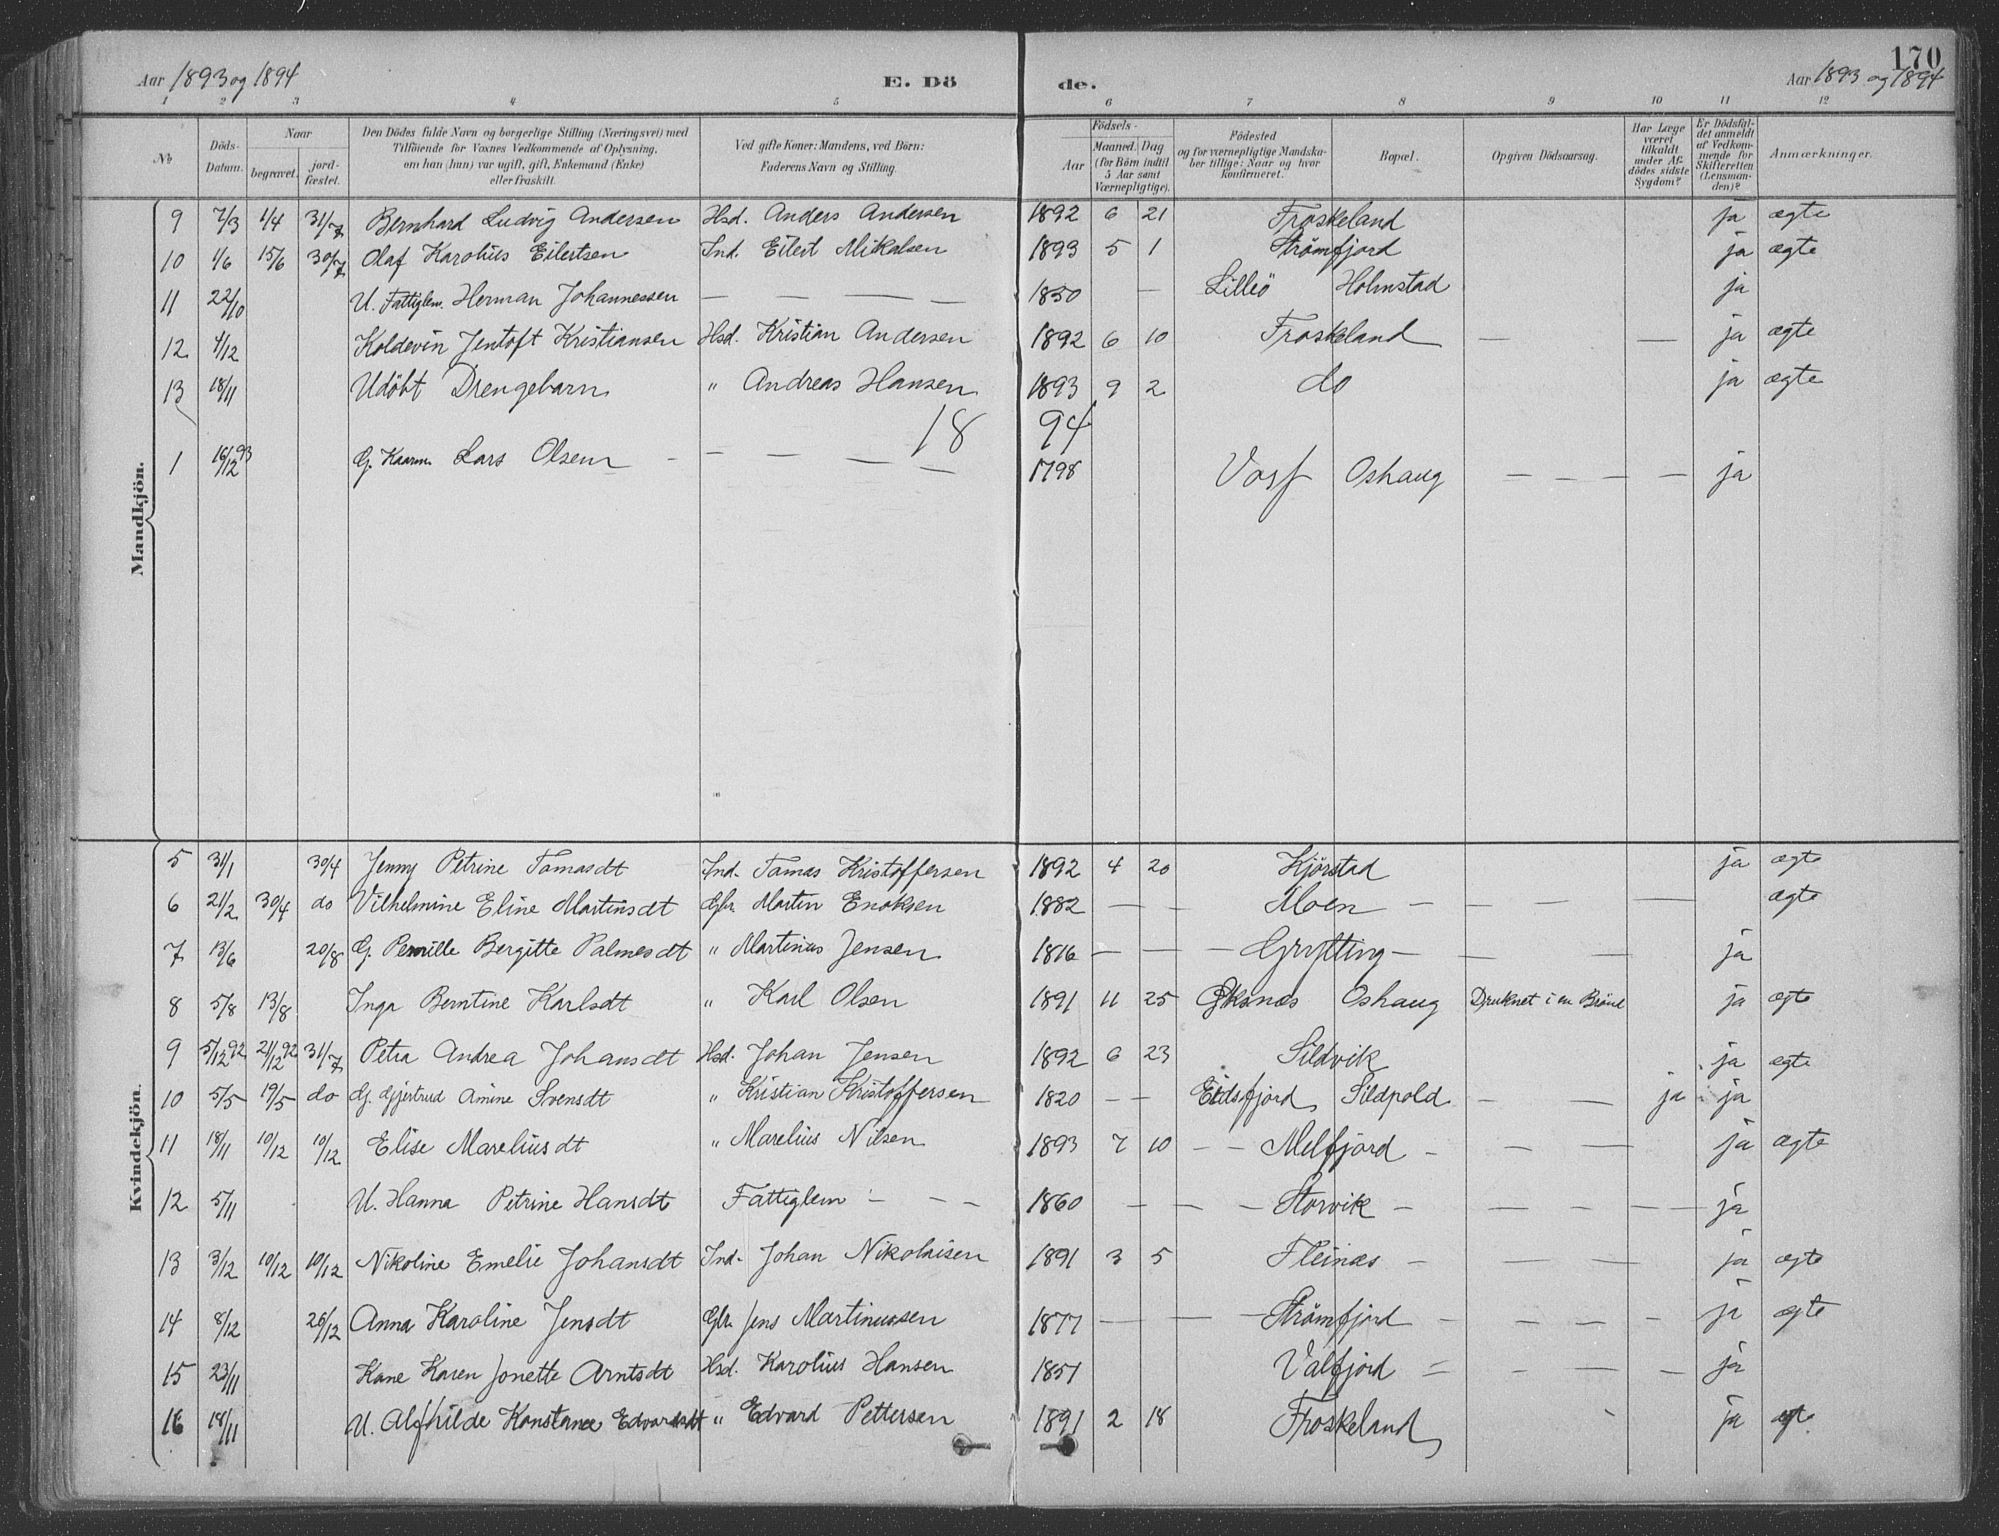 170
Aar 1893 og 1894 E. Dö de. Aar 1893 og 1894
1 2 3 4 5 6 7 8 9 10 11 12
No
Döds-Datum.
Naar
begravet.
jord-fæstet.
Den Dödes fulde Navn og borgerlige Stilling (Næringsvei) med
Tilföiende for Voxnes Vedkommende af Oplysning,
om han (hun) var ugift, gift, Enkemand (Enke)
eller fraskilt.
Ved gifte Koner: Mandens, ved Börn:
Faderens Navn og Stilling.
Födsels-
Aar
Maaned. Dag
(for Börn indtil
5 Aar samt
Værnepligtige).
Födested
og for værnepligtige Mandska-
ber tillige: Naar og hvor
konfirmeret.
Bopæl.
Opgiven Dödsaarsag.
Har Læge
været
tilkaldt
under Af-
dödes sidste
Sygdom?
Er Dödsfal-
det anmeldt
af Vedkom-
mende for
Skifteretten
(Lensman-
den)?
Anmærkninger.
Mandkjön.
9 7/3 1/4 31/7 Bernhard Ludvig Andersen Hsd. Anders Andersen 1892 6 21 Froskeland ja ægte
10 1/6 15/6 30/7 Olaf Karolius Eilertsen Ind. Eilert Mikalsen 1893 5 1 Strømfjord ja ægte
11 22/10 U. Fattiglem. Herman Johannessen — — — — 1850 — Lilleö Holmstad ja
12 4/12 Koldevin Jentoft Kristiansen Hsd. Kristian Andersen 1892 6 10 Froskeland — — ja ægte
13 18/11 Udöbt Drengebarn " Andreas Hansen 1893 9 2 do ja ægte
18 94
1 16/12 93 G. Kaarm. Lars Olsen — — — — — 1798 Oshaug — — — — ja
Kvindekjön.
5 31/1 30/4 Jenny Petrine Tomasdt Ind. Tomas Kristoffersen 1892 4 20 Kjörstad ja ægte
6 21/2 30/4 do Vilhelmine Eline Martinsdt Gbr. Martin Enoksen 1882 — — Moen — — — — ægte
7 13/6 20/8 G. Pernille Bergitte Palmesdt " Martinus Jensen 1816 — — — Grytting — — — ja
8 5/8 13/8 Inga Berntine Karlsdt " Karl Olsen 1891 11 25 Øksnæs Oshaug Druknet i en Brönd ja ægte
9 5/12 92 21/12 92 31/7 Petra Andrea Johansdt Hsd. Johan Jensen 1892 6 23 Sildvik ja ægte
10 5/5 19/5 do G. Gjertrud Amine Svensdt " Kristian Kristoffersen 1820 — — Eidsfjord Sildpold — — ja ja
11 18/11 10/12 10/12 Elise Mareliusdt " Marelius Nilsen 1893 7 10 — — Melfjord — — — ja ægte
12 5/11 U. Hanna Petrine Hansdt Fattiglem — — — 1860 — — — Storvik — — — — — ja
13 3/12 10/12 10/12 Nikoline Emelie Johansdt Ind. Johan Nikolaisen 1891 3 5 Fleinæs — — — ja ægte
14 8/12 26/12 Anna Karoline Jensdt Gbr. Jens Martinussen 1877 — — — Strømfjord — — — — ja ægte
15 23/11 Kone Karen Jonette Arntsdt Hsd. Karolius Hansen 1851 Valfjord — — — — ja
16 18/11 U. Alfhilde Konstance Edvardsdt " Edvard Pettersen 1891 2 18 Froskeland ja ægte